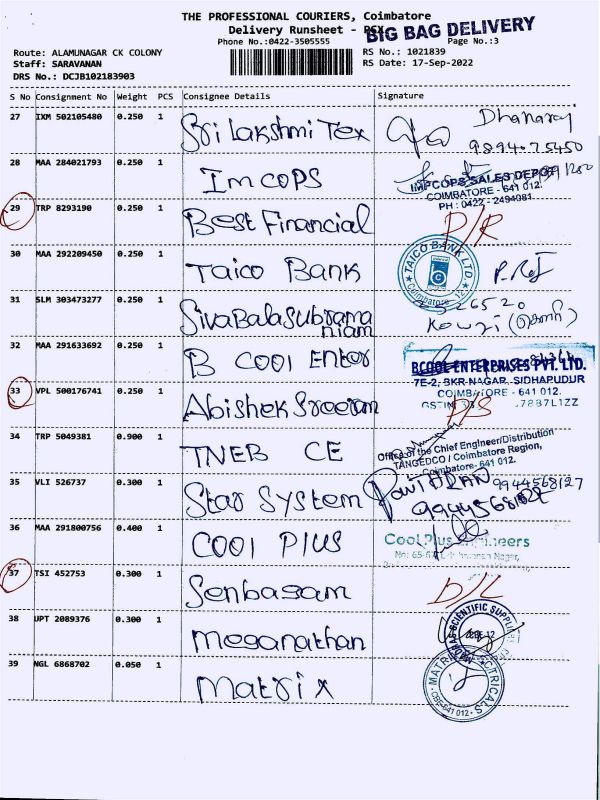 THE PROFESSIONAL COURIERS, Coimbatore
Delivery Runsheet - POX
BIG BAG DELIVERY
Phone No.:0422-3505555
Page No.:3
Route: ALAMUNAGAR CK COLONY
RS No.: 1021839
Staff: SARAVANAN
RS Date: 17-Sep-2022
DRS No.: DCJB102183903
S No Consignment No Weight PCS Consignee Details Signature
27 IXM 502105480 0.250 1 Sri Lakshmi Tex Dhanaraj
9894075450
28 MAA 284021793 0.250 1 Imcops
IMPCOPS SALES DEPOT
COIMBATORE - 641 012.
PH : 0422 - 2494081
29 TRP 8293190 0.250 1 Best Financial D/R
30 MAA 292209450 0.250 1 Taico Bank
TAICO BANK LTD.
Coimbatore - 12
31 SLM 303473277 0.250 1 SivaBalaSubramaniam
26520
32 MAA 291633692 0.250 1 B COOl Enter
BCOOL ENTERPRISES PVT. LTD.
7E-2, BKR NAGAR, SIDHAPUDUR
COIMBATORE - 641 012.
33 VPL 500176741 0.250 1 Abishek Sreeram D/S
34 TRP 5049381 0.900 1 TNEB CE
Office of the Chief Engineer/Distribution
TANGEDCO / Coimbatore Region,
Coimbatore- 641 012.
35 VLI 526737 0.300 1 Star System
9944568127
9944568127
36 MAA 291800756 0.400 1 COOl Plus
Cool Plus Engineers
37 TSI 452753 0.300 1 Senbagam D/L
38 UPT 2089376 0.300 1 Meganathan
MADRAS SCIENTIFIC SUPPLIERS
39 NGL 6868702 0.050 1 Matrix
MATRIX ELECTRICALS
CBE-641 012